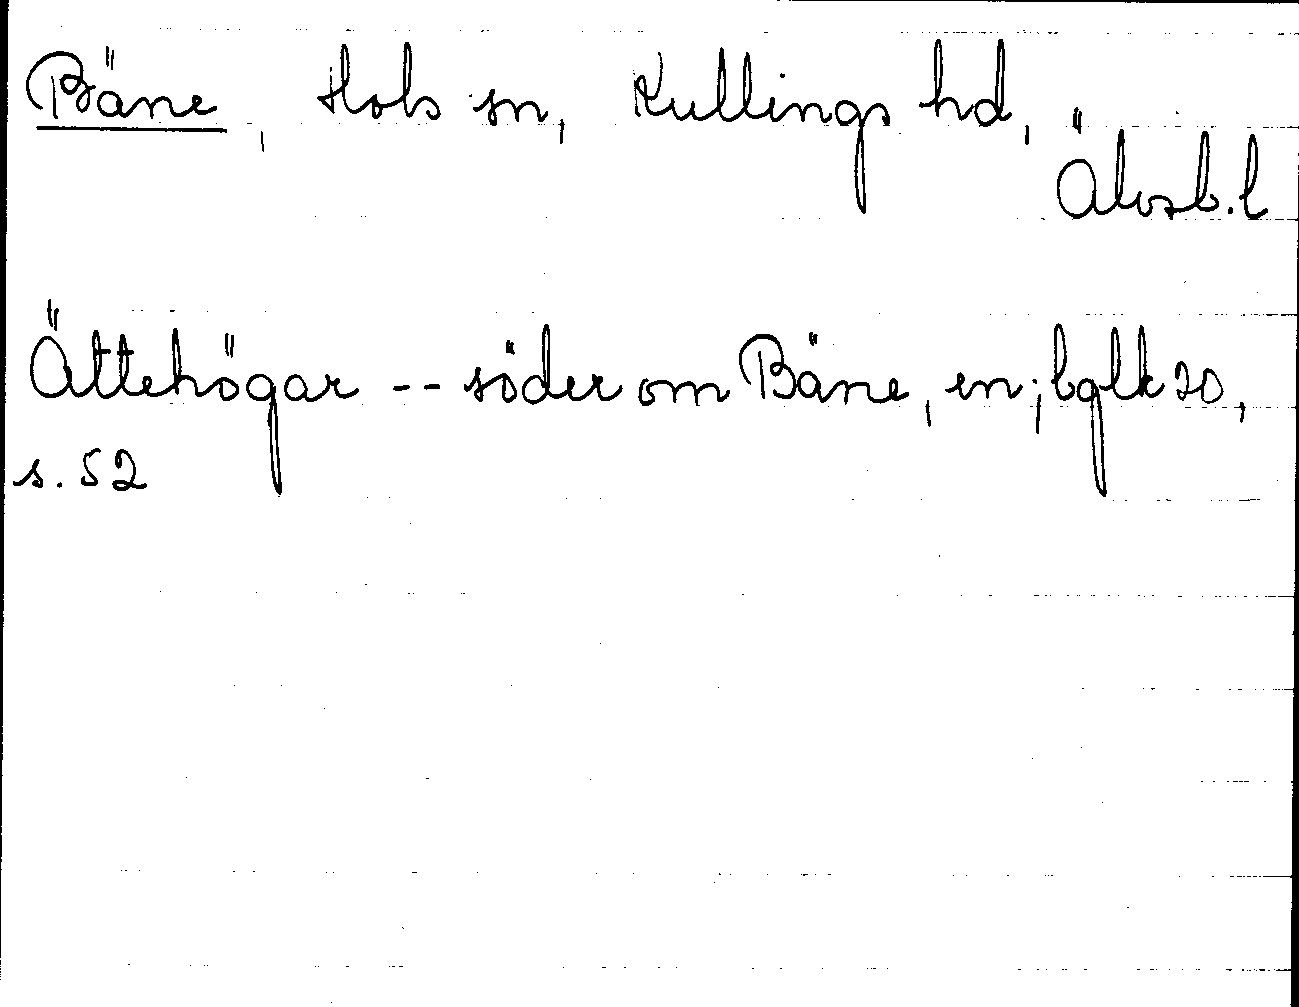 Bäne, Hols sn, Kullings hd,
Älvsb. l
Ättehögar -- söder om Bäne, en; bglk 20,
s. 52